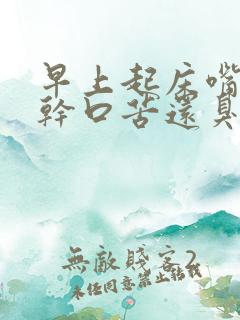 早上起床嘴
幹口苦還臭
無敵賤客2
未经同意禁止转载